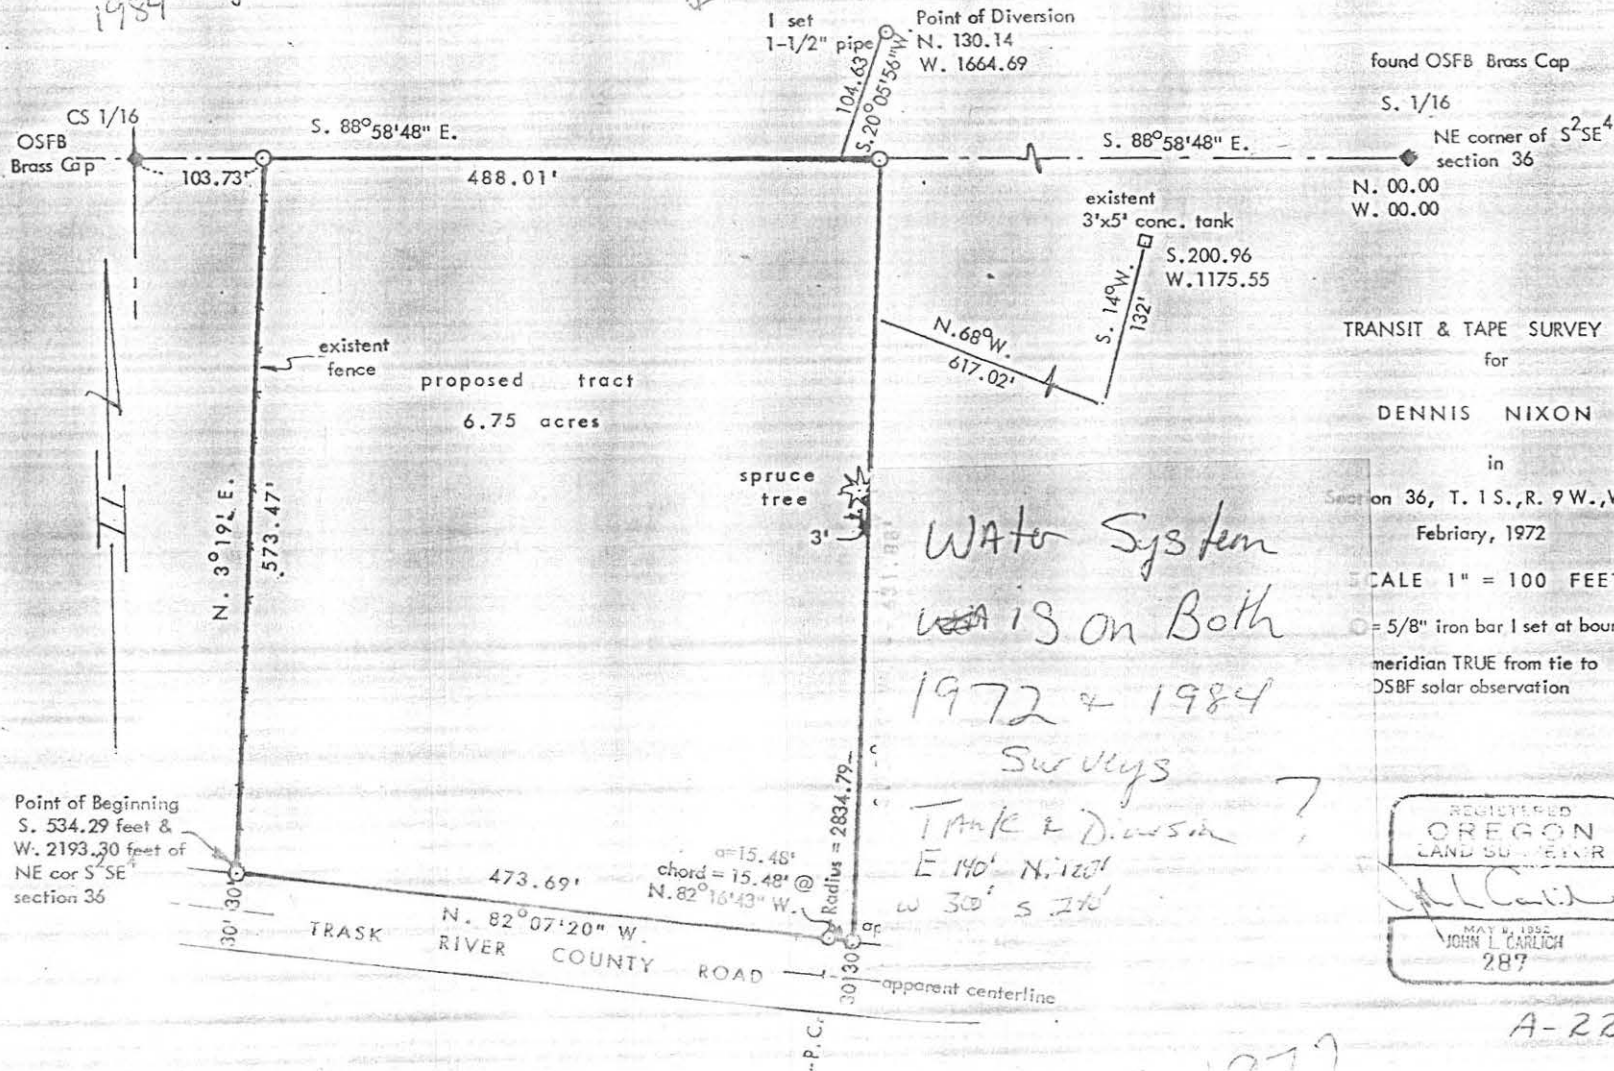 1984
I set
1-1/2" pipe
Point of Diversion
N. 130.14
W. 1664.69
104.63'
S.20°05'56"W.
found OSFB Brass Cap
S. 1/16
NE corner of S²SE⁴
section 36
N. 00.00
W. 00.00
CS 1/16
OSFB
Brass Cap
103.73'
S. 88°58'48" E.
488.01'
S. 88°58'48" E.
existent
3'x5' conc. tank
S.200.96
W.1175.55
S. 14°W.
132'
N.68°W.
617.02'
existent
fence
proposed tract
6.75 acres
N. 3°19' E.
573.47'
spruce
tree
3'
TRANSIT & TAPE SURVEY
for
DENNIS NIXON
in
Section 36, T. 1 S., R. 9 W., W
Febriary, 1972
SCALE 1" = 100 FEET
O = 5/8" iron bar I set at boun
meridian TRUE from tie to
OSBF solar observation
WAter System
is on Both
1972 & 1984
Surveys
TAnk & Diversin ?
E 140' N. 120'
W 300' S
Point of Beginning
S. 534.29 feet &
W. 2193.30 feet of
NE cor S²SE⁴
section 36
473.69'
N. 82°07'20" W.
a=15.48'
chord = 15.48' @
N.82°16'43" W.
Radius = 2834.79
30' 30'
TRASK RIVER COUNTY ROAD
30' 30'
apparent centerline
P. C.
REGISTERED
OREGON
LAND SURVEYOR
John L Carlich
MAY 8, 1952
JOHN L. CARLICH
287
A-22